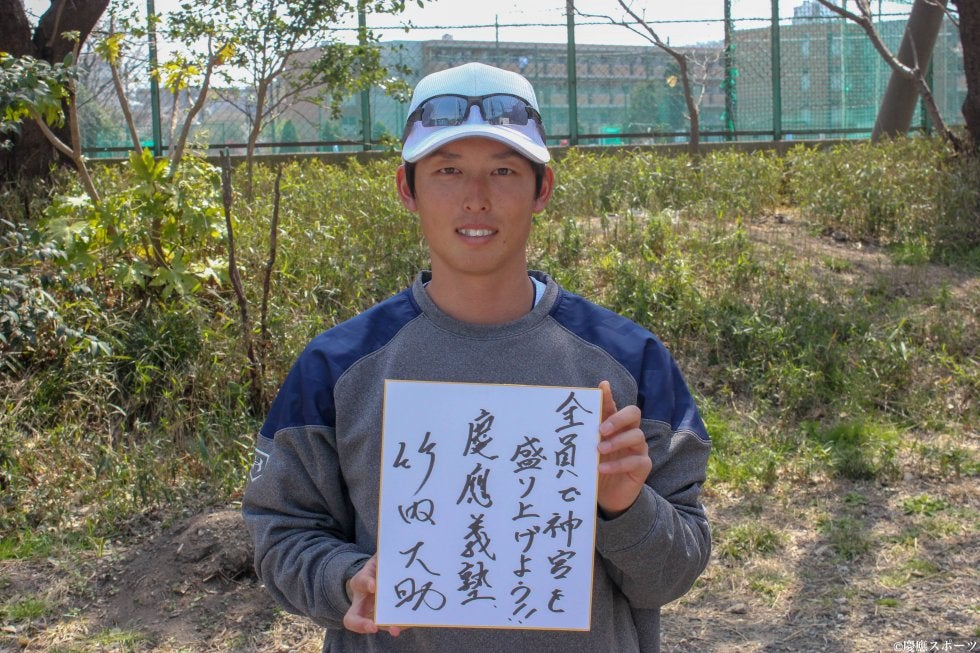 全員で神宮を
盛り上げよう!!
慶應義塾
竹内大助
©慶應スポーツ